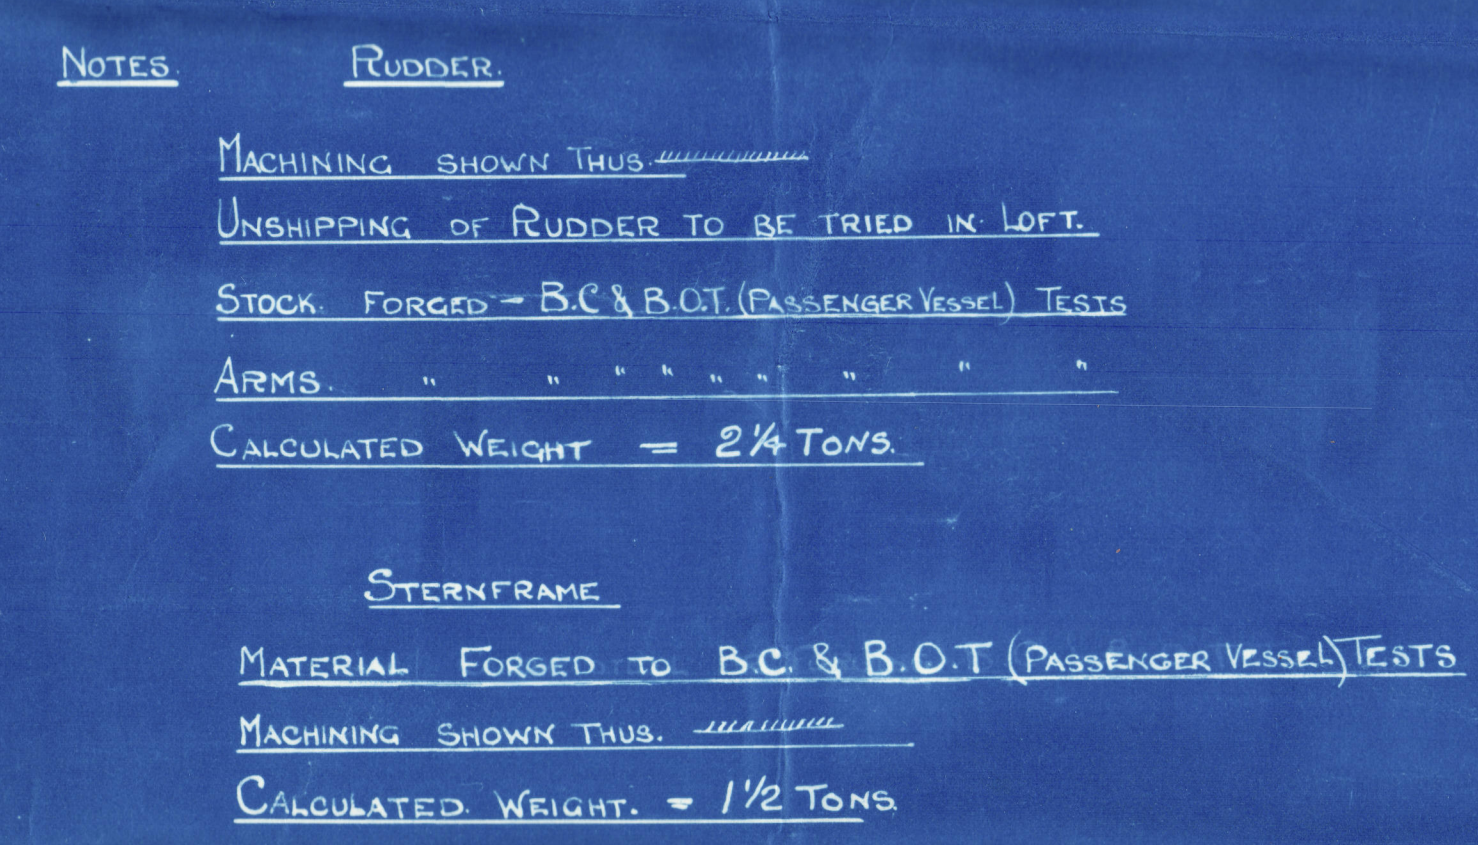 NOTES. RUDDER.
MACHINING SHOWN THUS.
UNSHIPPING OF RUDDER TO BE TRIED IN LOFT.
STOCK. FORGED - B.C & B.O.T. (PASSENGER VESSEL) TESTS
ARMS. " " " " " " " " "
CALCULATED WEIGHT = 2 1/4 TONS.
STERNFRAME
MATERIAL FORGED TO B.C. & B.O.T (PASSENGER VESSEL) TESTS
MACHINING SHOWN THUS.
CALCULATED. WEIGHT. = 1 1/2 TONS.